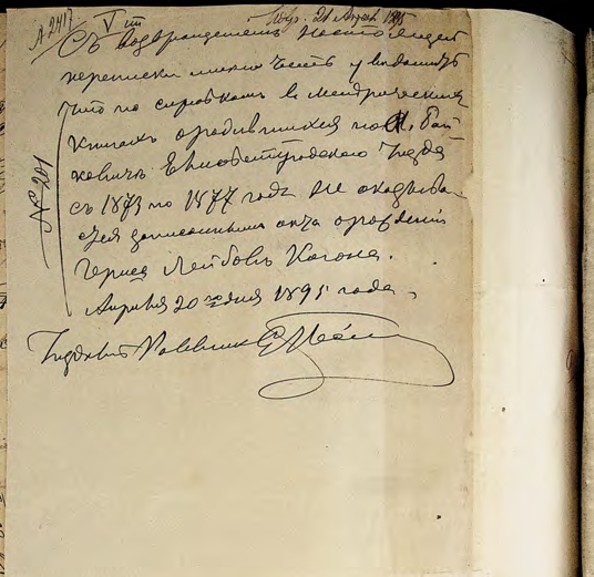 А 2417.
V ст
Пол. 21 Апреля 1895
Съ возвращеніемъ настоящей
переписки имею честь уведомить
что по справкамъ въ метрическихъ
книгахъ о родившихся по м.
Елисаветградскаго Уезда
съ 1873 по 1877 годъ не оказыва-
ется записаннымъ акта о рожденіи
Гершка Лейбовъ Когона.
Апреля 20 го дня 1895 года.
№ 201
Раввинъ